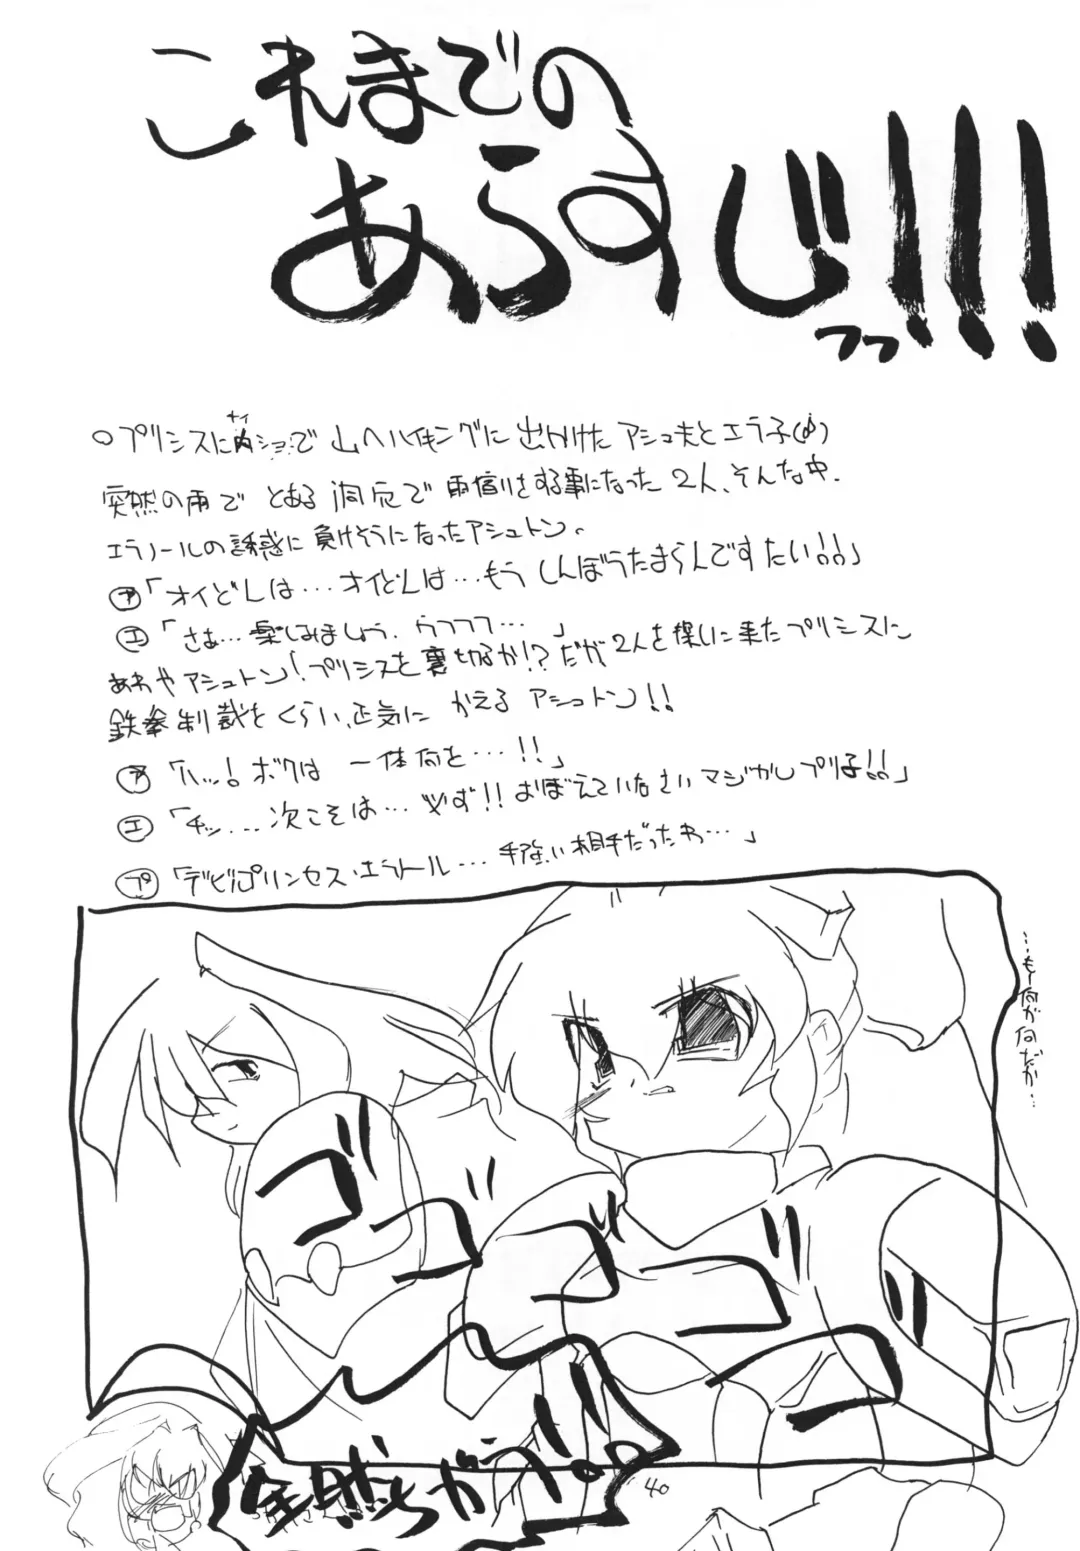 これまでの
あらすじっっ!!!
○プリシスに内ショで 山へハイキングに出かけた アシュ夫とエラ子
ナイ
突然の雨で とある 洞穴で 雨宿りをする事になった 2人、そんな中、
エラノールの誘惑に 負けそうになったアシュトン。
ア「オイどんは…オイどんは…もう しんぼうたまらんですたい!!」
エ「さぁ…楽しみましょう、ウフフフ…」
あわや アシュトン!プリシスを 裏切るか!?だが 2人を探しに来た プリシスに
鉄拳制裁を くらい、正気に かえる アシュトン!!
ア「ハッ!ボクは 一体何を…!!」
エ「チッ…次こそは…必ず!!おぼえていなさい マジカルプリ子!!」
プ「デビルプリンセス・エラノール…手強い相手だったわ…」
…もー何が何だか…
ゴゴゴゴゴ
全然ちがう
40